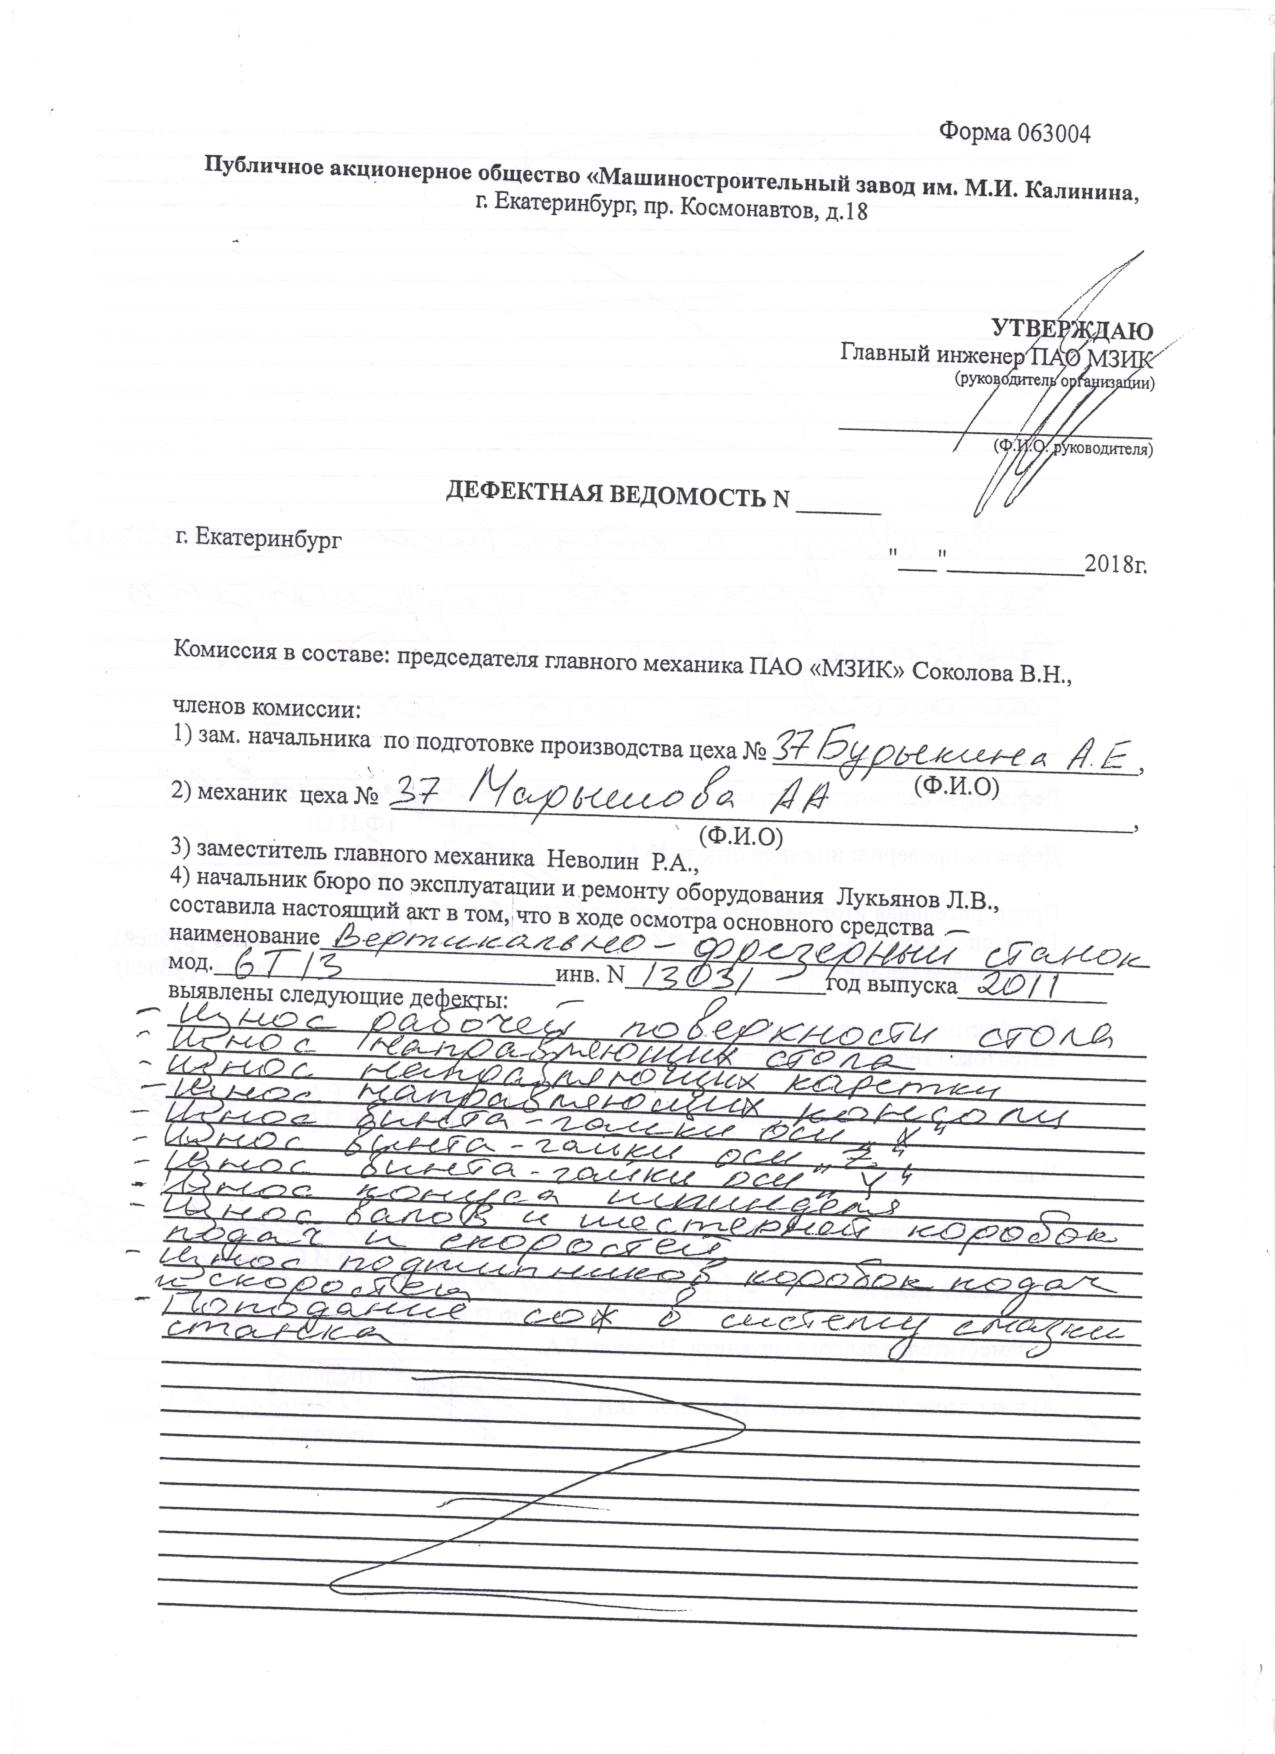 Форма 063004
Публичное акционерное общество «Машиностроительный завод им. М.И. Калинина,
г. Екатеринбург, пр. Космонавтов, д.18
УТВЕРЖДАЮ
Главный инженер ПАО МЗИК
(руководитель организации)
(Ф.И.О. руководителя)
ДЕФЕКТНАЯ ВЕДОМОСТЬ N ______
г. Екатеринбург
"___"___________2018г.
Комиссия в составе: председателя главного механика ПАО «МЗИК» Соколова В.Н.,
членов комиссии:
1) зам. начальника по подготовке производства цеха № 37 Бурыкина А.Е,
(Ф.И.О)
2) механик цеха № 37 Марышова АА,
(Ф.И.О)
3) заместитель главного механика Неволин Р.А.,
4) начальник бюро по эксплуатации и ремонту оборудования Лукьянов Л.В.,
составила настоящий акт в том, что в ходе осмотра основного средства –
наименование Вертикально-фрезерный станок
мод. 6Т13 инв. N 13031 год выпуска 2011
выявлены следующие дефекты:
- Износ рабочей поверхности стола
- Износ направляющих стола
- Износ направляющих каретки
- Износ направляющих консоли
- Износ винта-гайки оси „X“
- Износ винта-гайки оси „Z“
- Износ винта-гайки оси „Y“
- Износ конуса шпинделя
- Износ валов и шестерней коробок
подач и скоростей,
- Износ подшипников коробок подач
и скоростей
- Поподание сож в систему смазки
станка